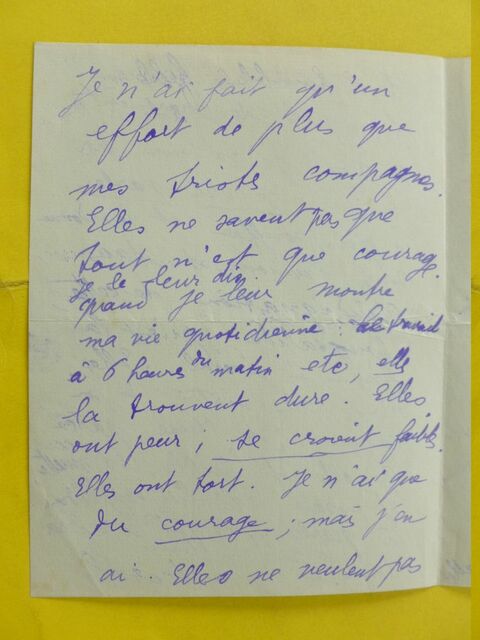 Je n'ai fait qu'un
effort de plus que
mes tristes compagnes.
Elles ne savent pas que
tout n'est que courage.
Je le leur dis.
quand je leur montre
ma vie quotidienne : le travail
à 6 heures du matin etc, elles
la trouvent dure. Elles
ont peur ; se croient faibles.
Elles ont tort. Je n'ai que
du courage ; mais j'en
ai. Elles ne veulent pas